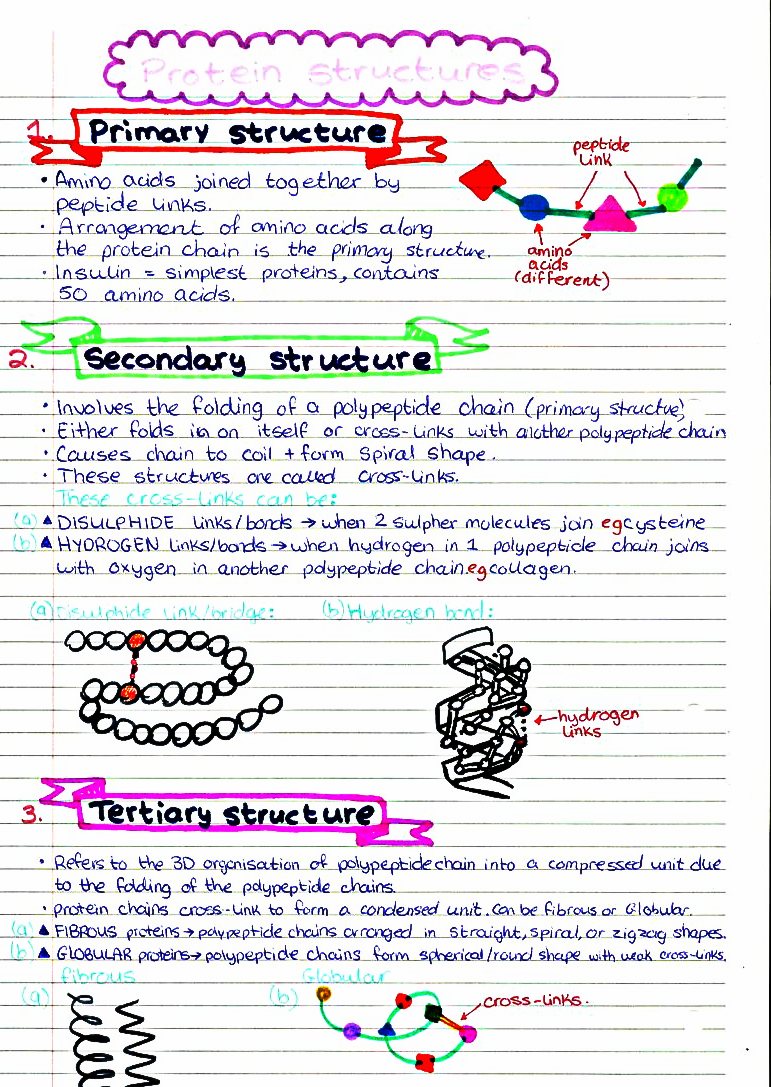 Protein structures
1. Primary structure
• Amino acids joined together by
peptide links.
• Arrangement of amino acids along
the protein chain is the primary structure.
• Insulin = simplest proteins, contains
50 amino acids.
peptide
link
amino
acids
(different)
2. Secondary structure
• Involves the folding of a polypeptide chain (primary structue)
• Either folds in on itself or cross-links with another polypeptide chain
• Causes chain to coil + form spiral shape.
• These structures are called cross-links.
These cross-links can be:
(a) ▲ DISULPHIDE links/bonds → when 2 sulpher molecules join eg cysteine
(b) ▲ HYDROGEN links/bonds → when hydrogen in 1 polypeptide chain joins
with oxygen in another polypeptide chain. eg collagen.
(a) Disulphide link/bridge: (b) Hydrogen bond:
hydrogen
links
3. Tertiary structure
• Refers to the 3D organisation of polypeptide chain into a compressed unit due
to the folding of the polypeptide chains.
• protein chains cross-link to form a condensed unit. Can be fibrous or Globular.
(a) ▲ FIBROUS proteins → polypeptide chains arranged in straight, spiral, or zigzag shapes.
(b) ▲ GLOBULAR proteins → polypeptide chains form spherical/round shape with weak cross-links.
fibrous Globular
(a) (b)
cross-links.